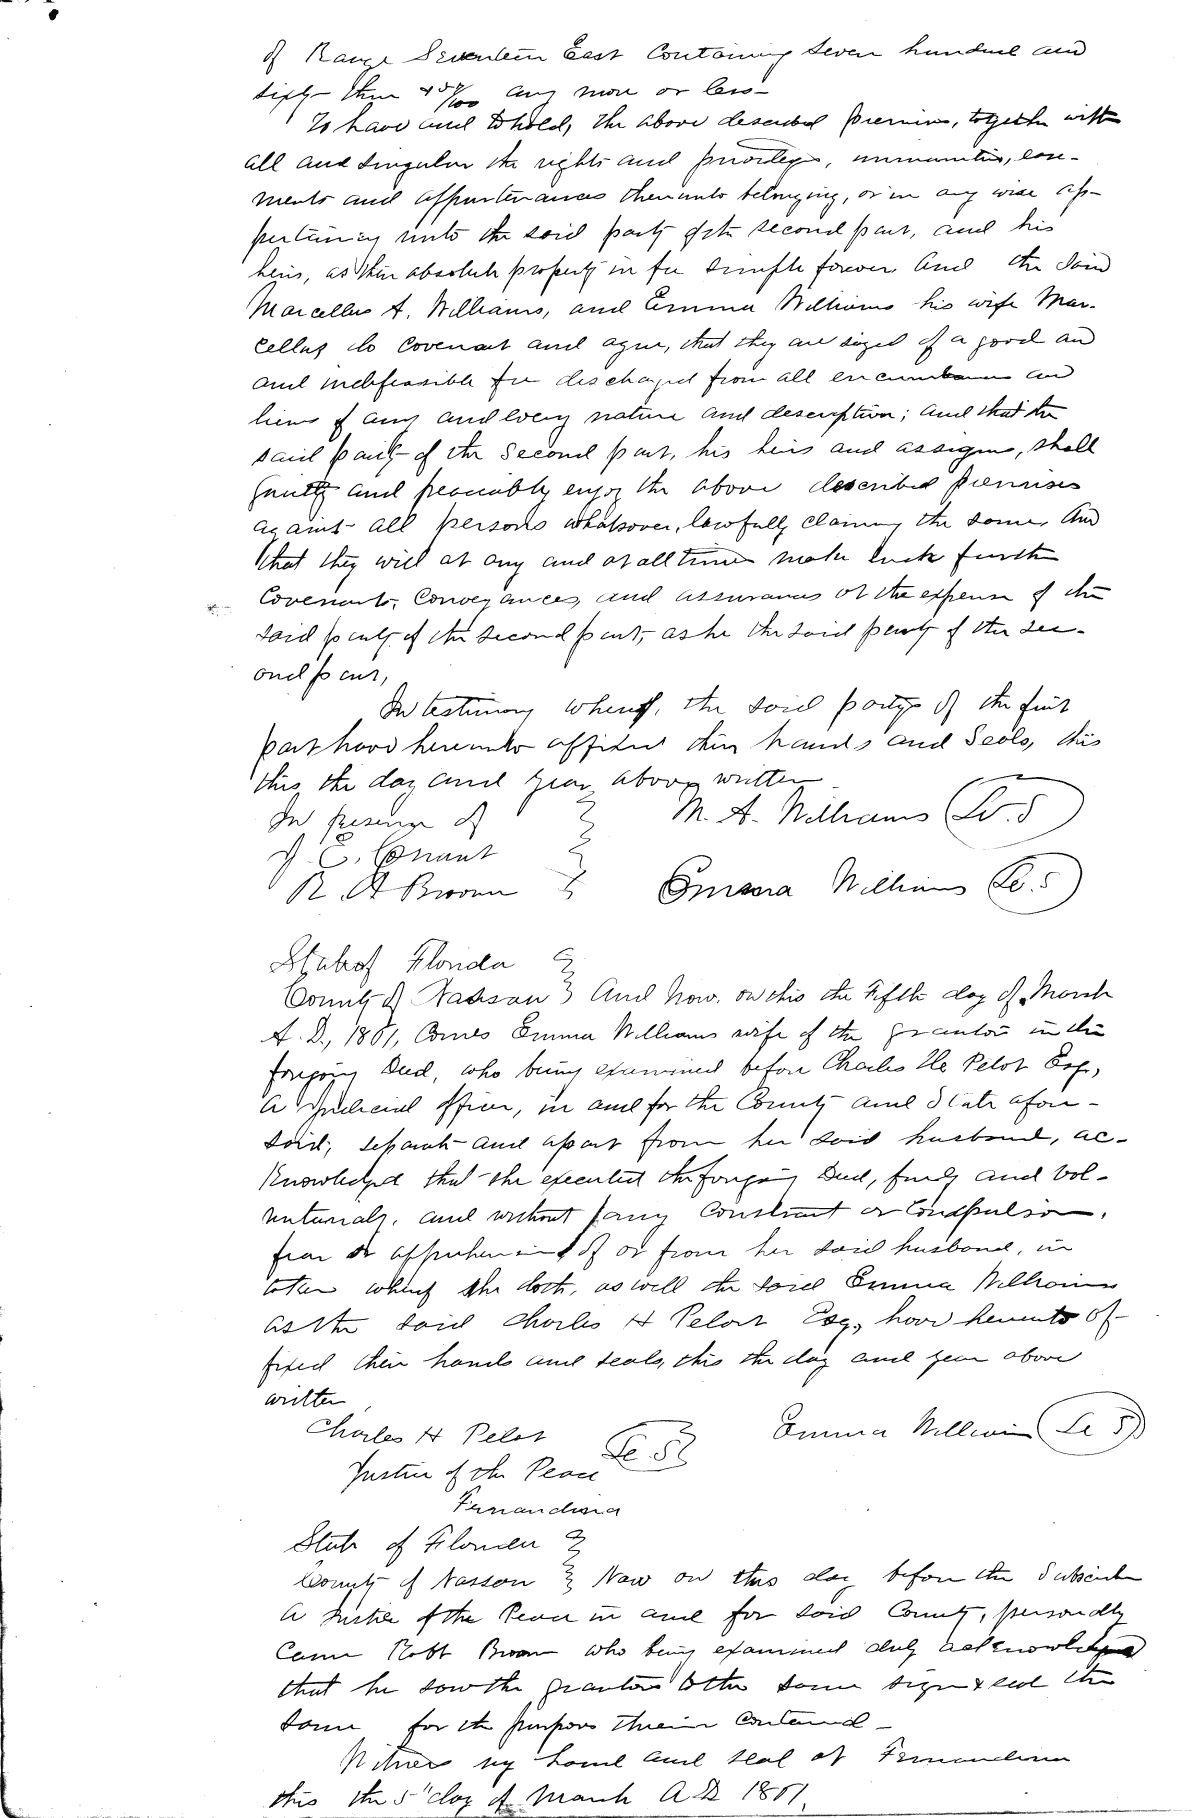 of Range Seventeen East Containing Seven hundred and
sixty three & /100 any more or less—
To have and to hold, the above described premises, together with
all and singular the rights and privileges, immunities, ease-
ments and appurtenances thereunto belonging, or in any wise ap-
pertaining unto the said party of the second part, and his
heirs, as their absolute property in fee simple forever And the Said
Marcellus A. Williams, and Emma Williams his wife Mar-
cellus do Covenant and agree, that they are siezed of a good an
and indefeasible fee discharged from all encumbrances and
liens of any and every nature and description; and that the
said party of the Second part, his heirs and assigns, shall
quietly and peaceably enjoy the above described premises
against all persons whatsover, lawfully claiming the same, And
that they will at any and at all times make such further
Covenants, Conveyances, and assurances at the expense of the
said party of the second part, as he the said party of the sec-
ond part,
In testimony whereof, the said partys of the first
part have hereunto affixed their hands and Seals, this
this the day and year above written
In presence of M. A. Williams L.S
J. C. Conant
R. A Broom Emma Williams L.S
State of Florida
County of Nassau And Now, on this the Fifth day of March
A. D., 1861, Comes Emma Williams wife of the grantor in the
foregoing Deed, who being examined before Charles He Pelot Esq,
A Judicial officer, in and for the County and State afore-
said; separate and apart from her said husband, ac-
knowledged that she executed the foregoing Deed, freely and vol-
untarialy, and without any Constraint or Compulsion,
fear or apprehension of or from her said husband, in
token whereof she doth, as well the said Emma Williams
as the said Charles H Pelot Esq, have hereunto af-
fixed their hands and seals, this the day and year above
written
Charles H Pelot L.S Emma Williams L.S
Justice of the Peace
Fernandina
State of Florida
County of Nassau Now on this day before the Subscriber
A Justice of the Peace in and for said County, personally
Came Robt Broom who being examined duly acknowledged
that he saw the grantors to the same sign & seal the
same for the purposes therein Contained—
Witness my hand and seal at Fernandina
this the 5th day of March A D 1861.